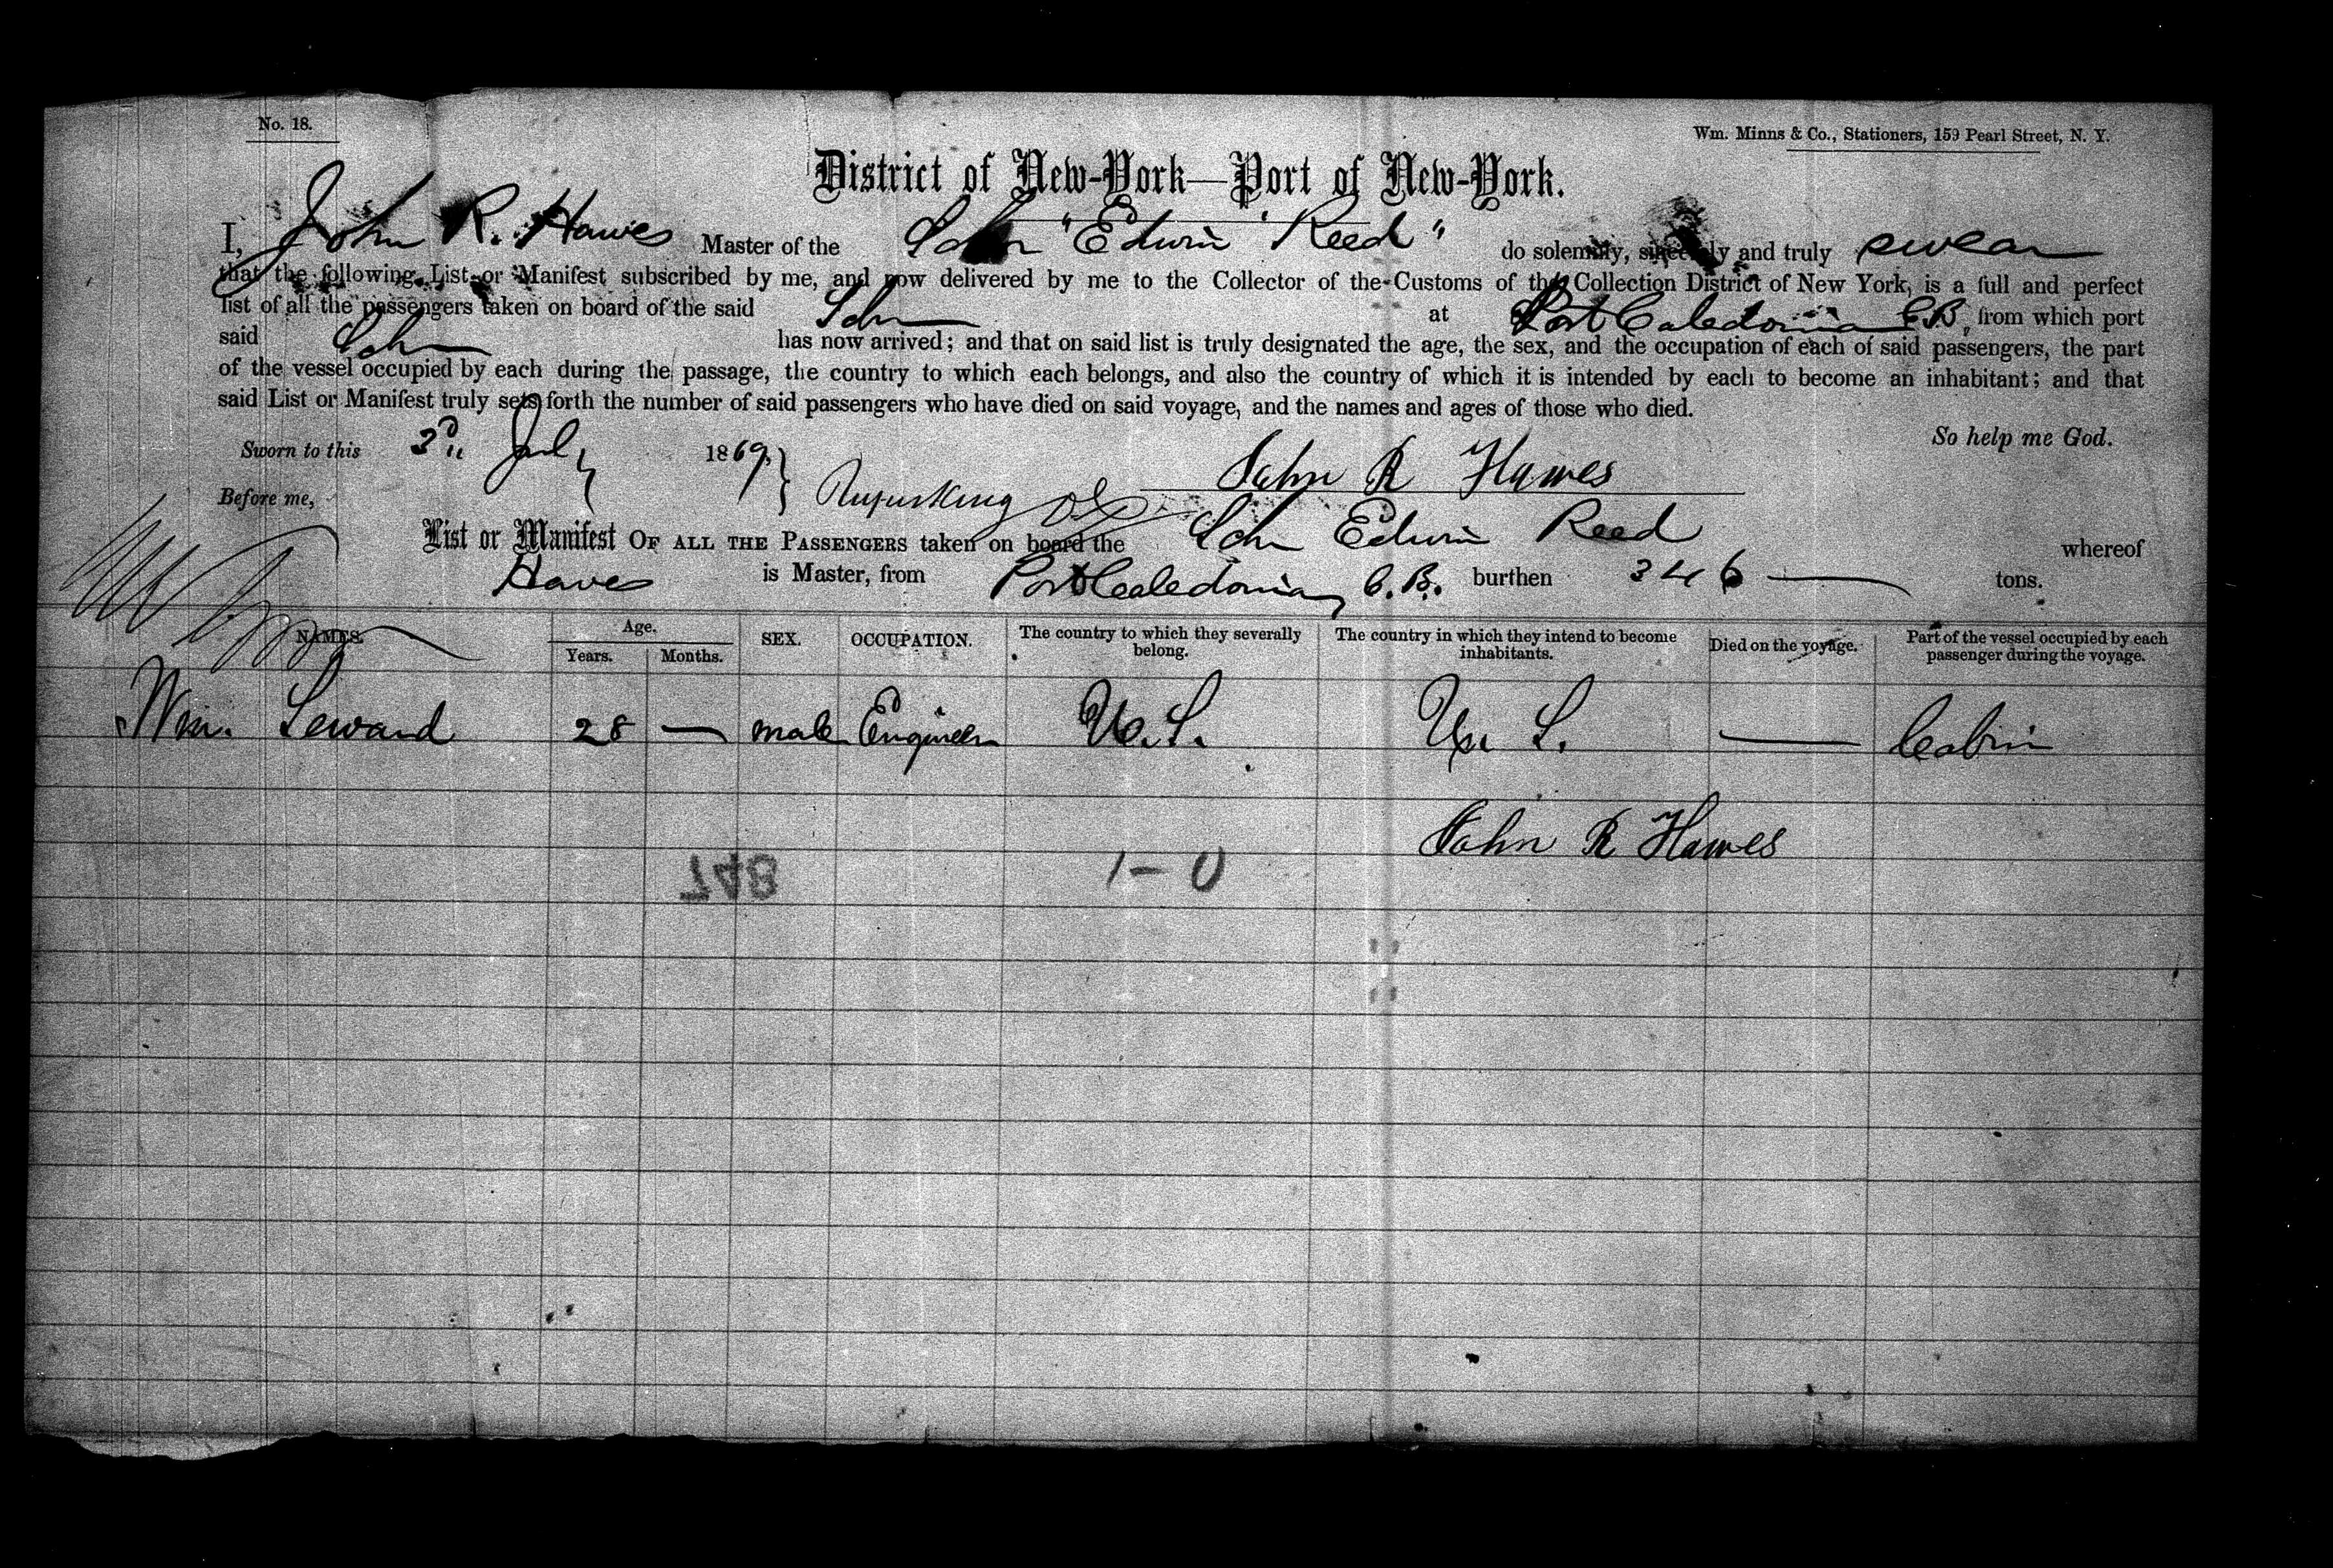 No. 18.
Wm. Minns & Co., Stationers, 159 Pearl Street, N. Y.
District of New-York—Port of New-York.
I, John R. Hawes Master of the Schr "Edwin Reed" do solemnly, sincerely and truly swear
that the following List or Manifest subscribed by me, and now delivered by me to the Collector of the Customs of the Collection District of New York, is a full and perfect
list of all the passengers taken on board of the said Schr at Port Caledonia C.B, from which port
said Schr has now arrived; and that on said list is truly designated the age, the sex, and the occupation of each of said passengers, the part
of the vessel occupied by each during the passage, the country to which each belongs, and also the country of which it is intended by each to become an inhabitant; and that
said List or Manifest truly sets forth the number of said passengers who have died on said voyage, and the names and ages of those who died.
So help me God.
Sworn to this 3d July 1869. John R Hawes
Before me, Rufus King
List or Manifest OF ALL THE PASSENGERS taken on board the Schr Edwin Reed whereof
Hawes is Master, from Port Caledonia, C. B. burthen 346 tons.
NAMES. Age. Years. Months. SEX. OCCUPATION. The country to which they severally belong. The country in which they intend to become inhabitants. Died on the voyage. Part of the vessel occupied by each passenger during the voyage.
Wm. Seward 28 — male Engineer U.S. U. S. — Cabin
John R Hawes
748 1-0